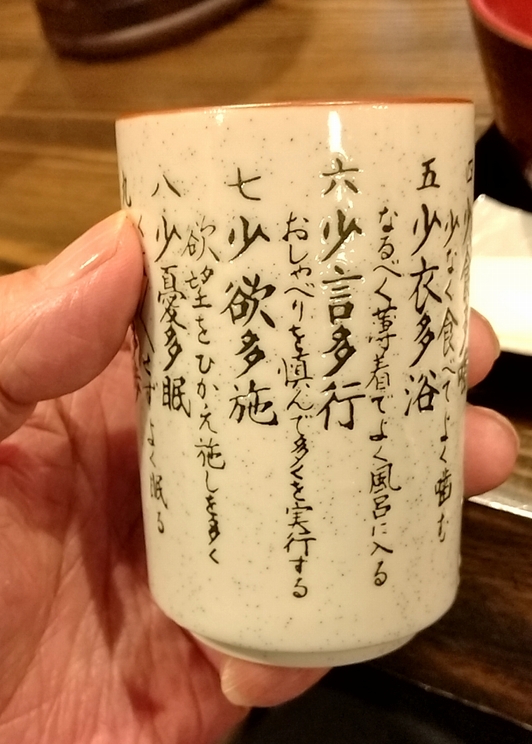 少なく食べてよく噛む
五 少衣多浴
なるべく薄着でよく風呂に入る
六 少言多行
おしゃべりを慎んで多くを実行する
七 少欲多施
欲望をひかえ施しを多く
八 少憂多眠
くよくよせずよく眠る
九